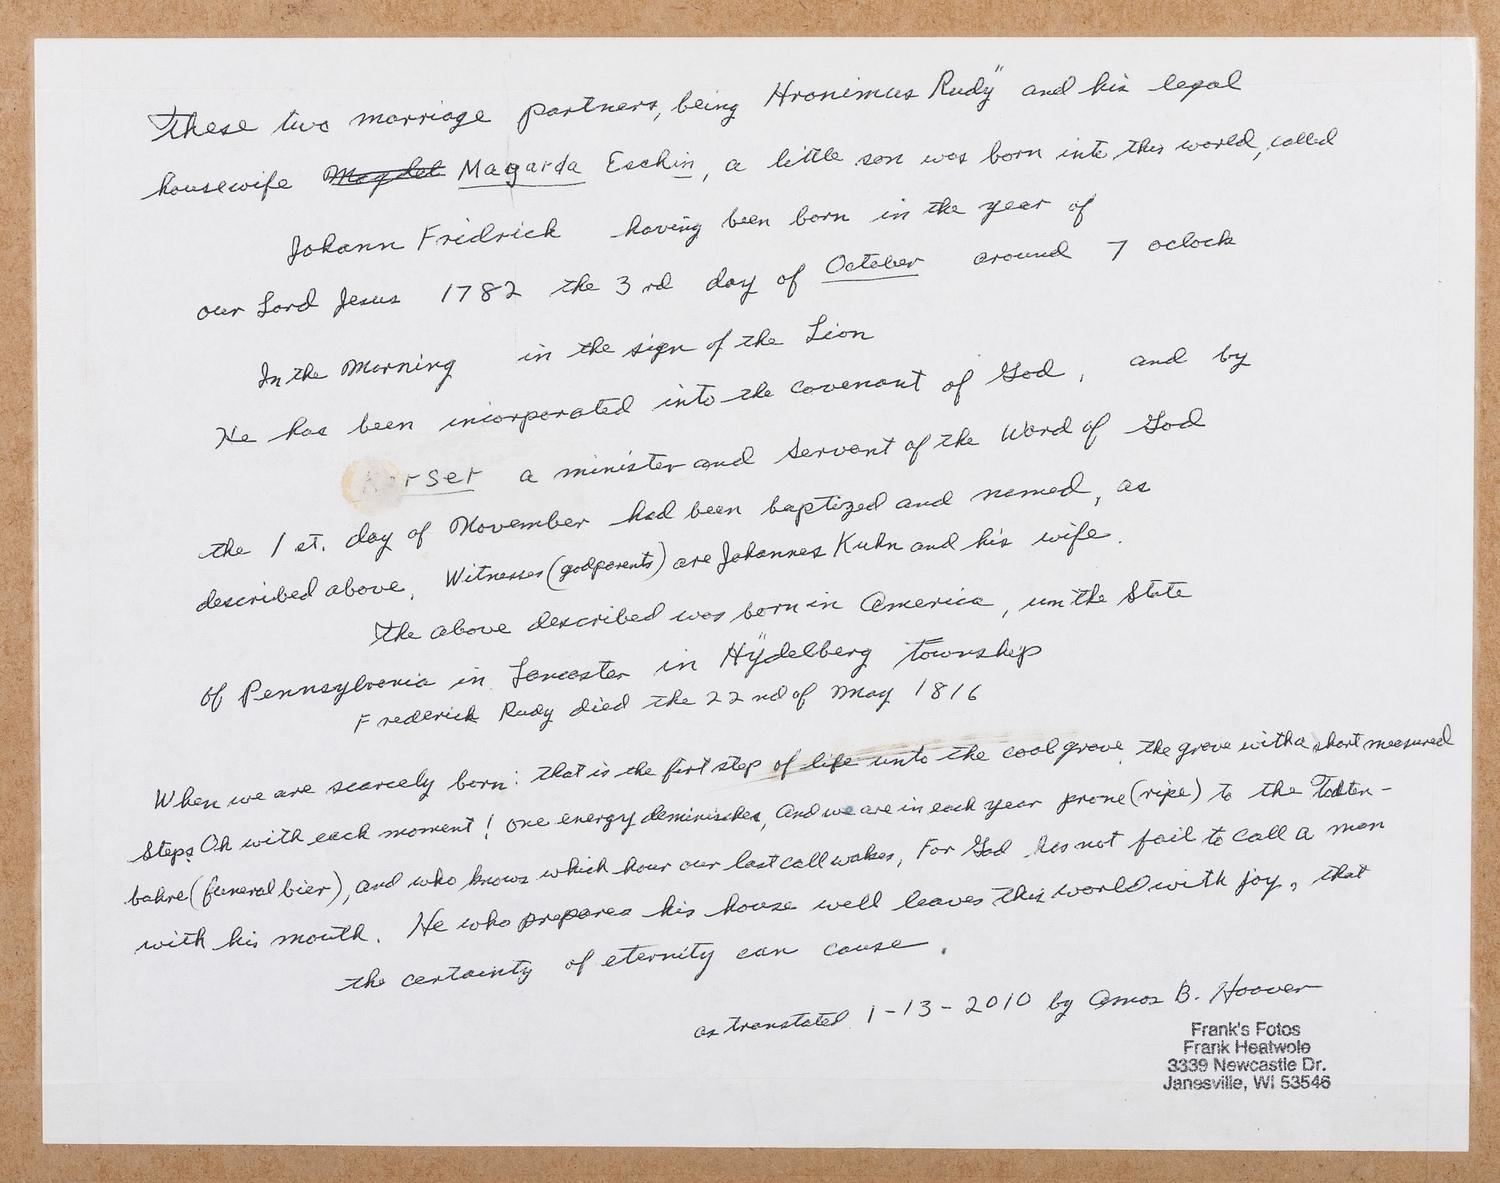 These two marriage partners, being Hronimus Rudÿ and his legal
housewife Magdal Magarda Eschin, a little son was born into this world, called
Johann Fridrick having been born in the year of
our Lord Jesus 1782 the 3rd day of October around 7 oclock
In the Morning in the sign of the Lion
He has been incorporated into the covenant of God, and by
rser a minister and Servant of the Word of God
the 1st. day of November had been baptized and named, as
described above. Witnesses (godparents) are Johannes Kuhn and his wife.
The above described was born in America, um the State
of Pennsylvania in Lancaster in Hÿdelberg township
Frederick Rudy died the 22nd of May 1816
When we are scarcely born: that is the first step of life unto the cool grove, the grove with a short measured
steps Oh with each moment! one energy deminisches, and we are in each year prone (ripe) to the Todten-
bahre (funeral bier), and who knows which hour our last call wakes, For God has not fail to call a man
with his mouth. He who prepares his house well leaves this world with joy, that
the certainty of eternity can cause.
as translated 1-13-2010 by Amos B. Hoover
Frank's Fotos
Frank Heatwole
3339 Newcastle Dr.
Janesville, WI 53546